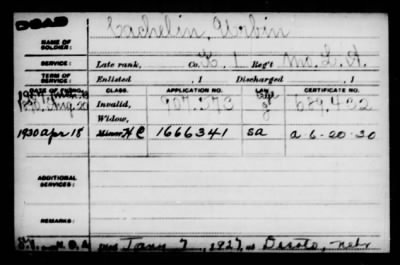 DEAD
NAME OF SOLDIER: Cachelin, Urbin
SERVICE: Late rank, Co. K, 1 Reg't Mo. L. A.
TERM OF SERVICE: Enlisted , 1 Discharged , 1
DATE OF FILING. CLASS. APPLICATION NO. LAW. CERTIFICATE NO.
1890 Aug 20 Invalid, 907.273 689.432
Widow,
1930 Apr 18 Minor, H C 1666341 SA a 6-20-30
ADDITIONAL SERVICES:
REMARKS:
Jany 7, 1927, at Desoto, Nebr